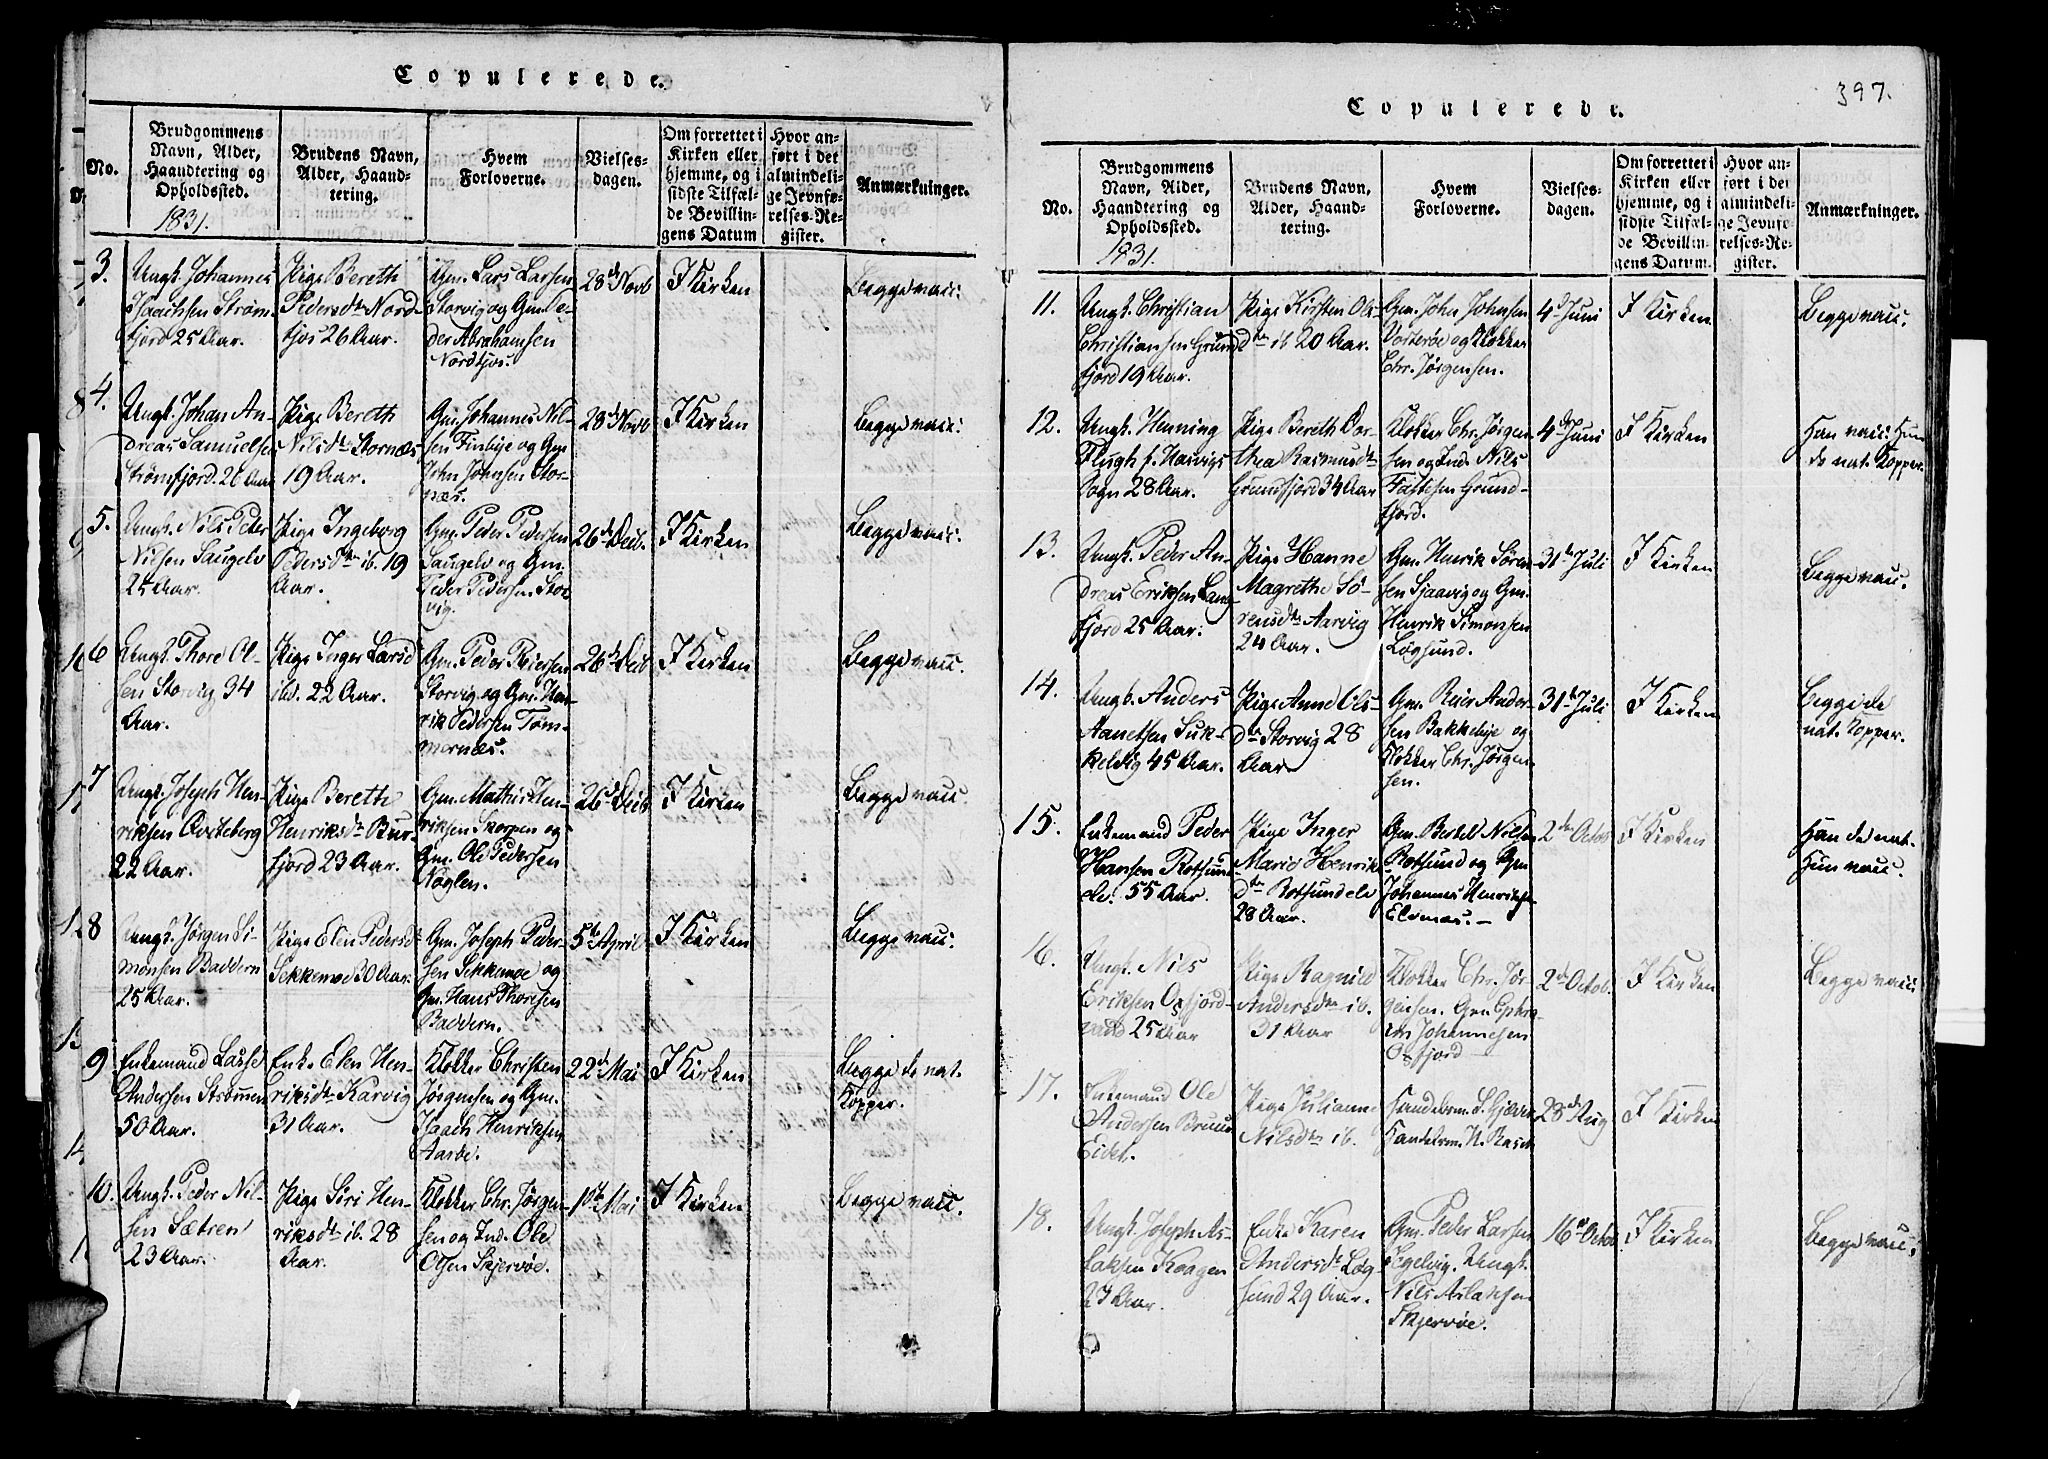 Copulerede.
No.
Brudgommens
Navn, Alder,
Haandtering og
Opholdssted.
1831.
Brudens Navn,
Alder, Haand-
tering.
Hvem
Forloverne.
Vielses-
dagen.
Om forrettet i
Kirken eller
hjemme, og i
sidste Tilfæl-
de Bevillin-
gens Datum
Hvor an-
ført i det
almindeli-
ge Jevnfø-
relses-Re-
gister.
Anmærkninger.
3.
Ungk. Johannes
Isachsen Strøm-
fjord 25 Aar.
Pige Bereth
Pedersdtr Nord-
kjos 26 Aar.
Gm. Lars Larsen
Storvig og Gm. Pe-
der Abrahamsen
Nordkjos.
28de Novb
I Kirken
Begge vacc.
4.
Ungk. Johan An-
dreas Samuelsen
Strømfjord 26 Aar
Pige Bereth
Nilsdtr Stornæs
19 Aar.
Gm. Johannes Nil-
sen og Gm
John Johnsen Stor-
næs.
28de Novb
I Kirken
Begge vacc.
5.
Ungk. Nils Peder
Nilsen Saugelv
24 Aar.
Pige Ingeborg
Pedersdtr ib. 19
Aar.
Gm. Peder Pedersen
Saugelv og Gm.
Peder Pedersen Stor-
vig.
26de Decb.
I Kirken
Begge vacc.
6
Ungk. Thore Ol-
sen Storvig 34
Aar.
Pige Inger Larsd
ibd. 22 Aar.
Gm. Peder Reiersen
Storvig og Gm. Hen-
rik Pedersen Tøm-
mernæs.
26de Decb
I Kirken
Begge vacc.
7
Ungk. Joseph Hen-
riksen Qviteberg
22 Aar.
Pige Bereth
Henriksdtr Bur-
fjord 23 Aar.
Gm. Mathis Hen-
riksen Skorpen og
Gm. Ole Pedersen
Nøglen.
26de Decb
I Kirken
Begge vacc.
8
Ungk. Jørgen Si-
monsen Baddern
25 Aar.
Pige Elen Pedersd
Sekkemoe 30 Aar.
Gm. Joseph Peder-
sen Sekkemoe og
Gm. Hans Thoresen
Baddern.
5te April
I Kirken
Begge vacc.
9
Enkemand Lasse
Andersen Strømmen
50 Aar.
Enke Elen Hen-
riksdtr Karvig
31 Aar.
Klokker Christen
Jørgensen og Gm.
Isach Henriksen
22de Mai
I Kirken
Begge de nat.
Kopper.
10.
Ungk. Peder Nil-
sen Sætren
23 Aar.
Pige Siri Hen-
riksdtr ib. 28
Aar.
Klokker Chr. Jørgen-
sen og Ind. Ole
Olsen Skjervøe.
Mai
I Kirken
Begge vacc.
397.
Copulerede.
No.
Brudgommens
Navn, Alder,
Haandtering og
Opholdssted.
1831.
Brudens Navn,
Alder, Haand-
tering.
Hvem
Forloverne.
Vielses-
dagen.
Om forrettet i
Kirken eller
hjemme, og i
sidste Tilfæl-
de Bevillin-
gens Datum.
Hvor an-
ført i det
almindeli-
ge Jevnfø-
relses-Re-
gister.
Anmærkninger.
11.
Ungk. Christian
Christiansen Grund-
fjord 19 Aar.
Pige Kirsten Ols-
dtr ib 20 Aar.
Gm. John Johnsen
Vorterøe og Klokker
Chr. Jørgensen.
4de Juni
I Kirken
Begge vacc.
12.
Ungk. Henning
Flugh f. Hasvigs
Sogn 28 Aar.
Pige Bereth Dor-
thea Rasmusdtr
Grundfjord 34 Aar
Klokker Chr. Jørgen-
sen og Ind. Nils
Grund-
fjord.
4de Juni
I Kirken
Han vacc. Hun
de nat. Kopper.
13.
Ungk. Peder An-
dreas Eriksen Lang-
fjord 25 Aar.
Pige Hanne
Magrethe Sö-
rensdtr Aarvig
24 Aar.
Gm. Henrik Sören-
sen Sjaavig og Gm.
Henrik Simonsen
Løgsund.
31te Juli
I Kirken
Begge vacc.
14.
Ungk. Anders
Aanetsen Suk-
kelvig 45 Aar.
Pige Anne Ols-
dtr Storvig 28
Aar
Gm. Reier Ander-
sen Bakkebye og
Klokker Chr. Jørgen-
sen.
31te Juli
I Kirken
Begge de
nat. Kopper.
15.
Enkemand Peder
Hansen Rotsund-
elv. 55 Aar.
Pige Inger
Marie Henrik-
dtr Rotsundelv
28 Aar.
Gm. Bertel Nilsen
Rotsund og Gm
Johannes Henriksen
Elvenæs.
2den Octob
I Kirken
Han de nat.
Hun vacc.
16.
Ungk. Nils
Eriksen Oxfjord-
vand 25 Aar
Pige Ragnild
Andersdtr ib.
31 Aar
Klokker Chr. Jør-
gensen. Gm Ephra-
im Johannesen
Oxfjord
2den Octob.
I Kirken
Begge vacc.
17.
Enkemand Ole
Andersen Bruun
Eidet.
Pige Julianne
Nilsdtr ib.
Handelsm. S. Gjæver
Handelsm. H. Rasch
28de Aug
I Kirken
18.
Ungk. Joseph As-
laksen Kaagen
27 Aar.
Enke Karen
Andersdtr Løg-
sund 29 Aar.
Gm. Peder Larsen
Segelvig. Ungk.
Nils Aslaksen
Skjervøe.
16de Octob
I Kirken
Begge vacc.